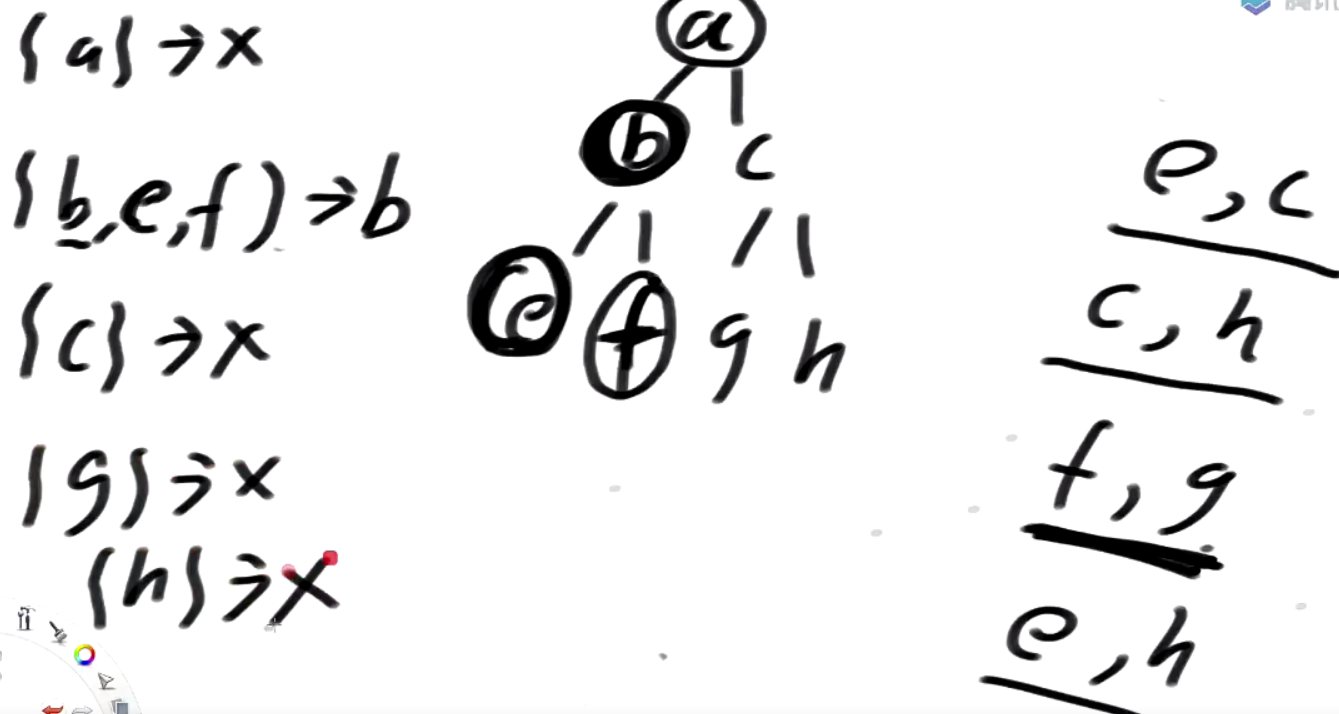 {a} → x
{b,e,f} → b
{c} → x
{g} → x
{h} → x
a
b c
e f g h
e,c
c,h
f,g
e,h